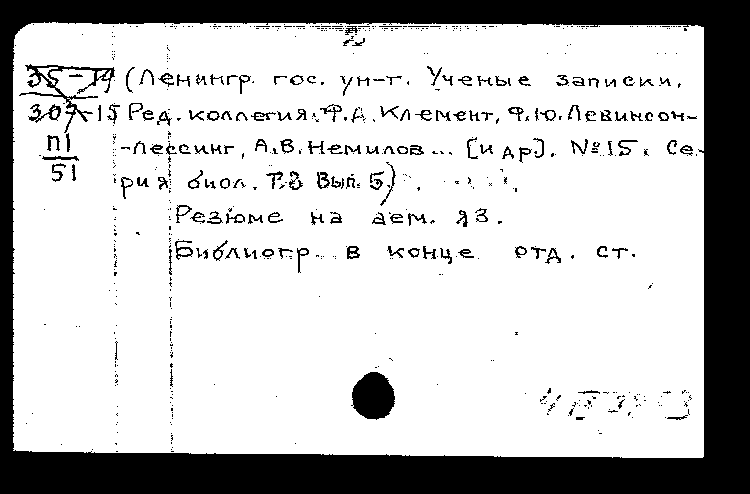 2
35-19 (Ленингр. гос. ун-т. Ученые записки.
307-15 Ред. коллегия: Ф.Д. Клемент, Ф.Ю. Левинсон-
П1 -Лессинг, А.В. Немилов... [и др]. №15. Се-
51 рия биол. Вып. 5)
Резюме на аем. яз.
Библиогр. в конце отд. ст.